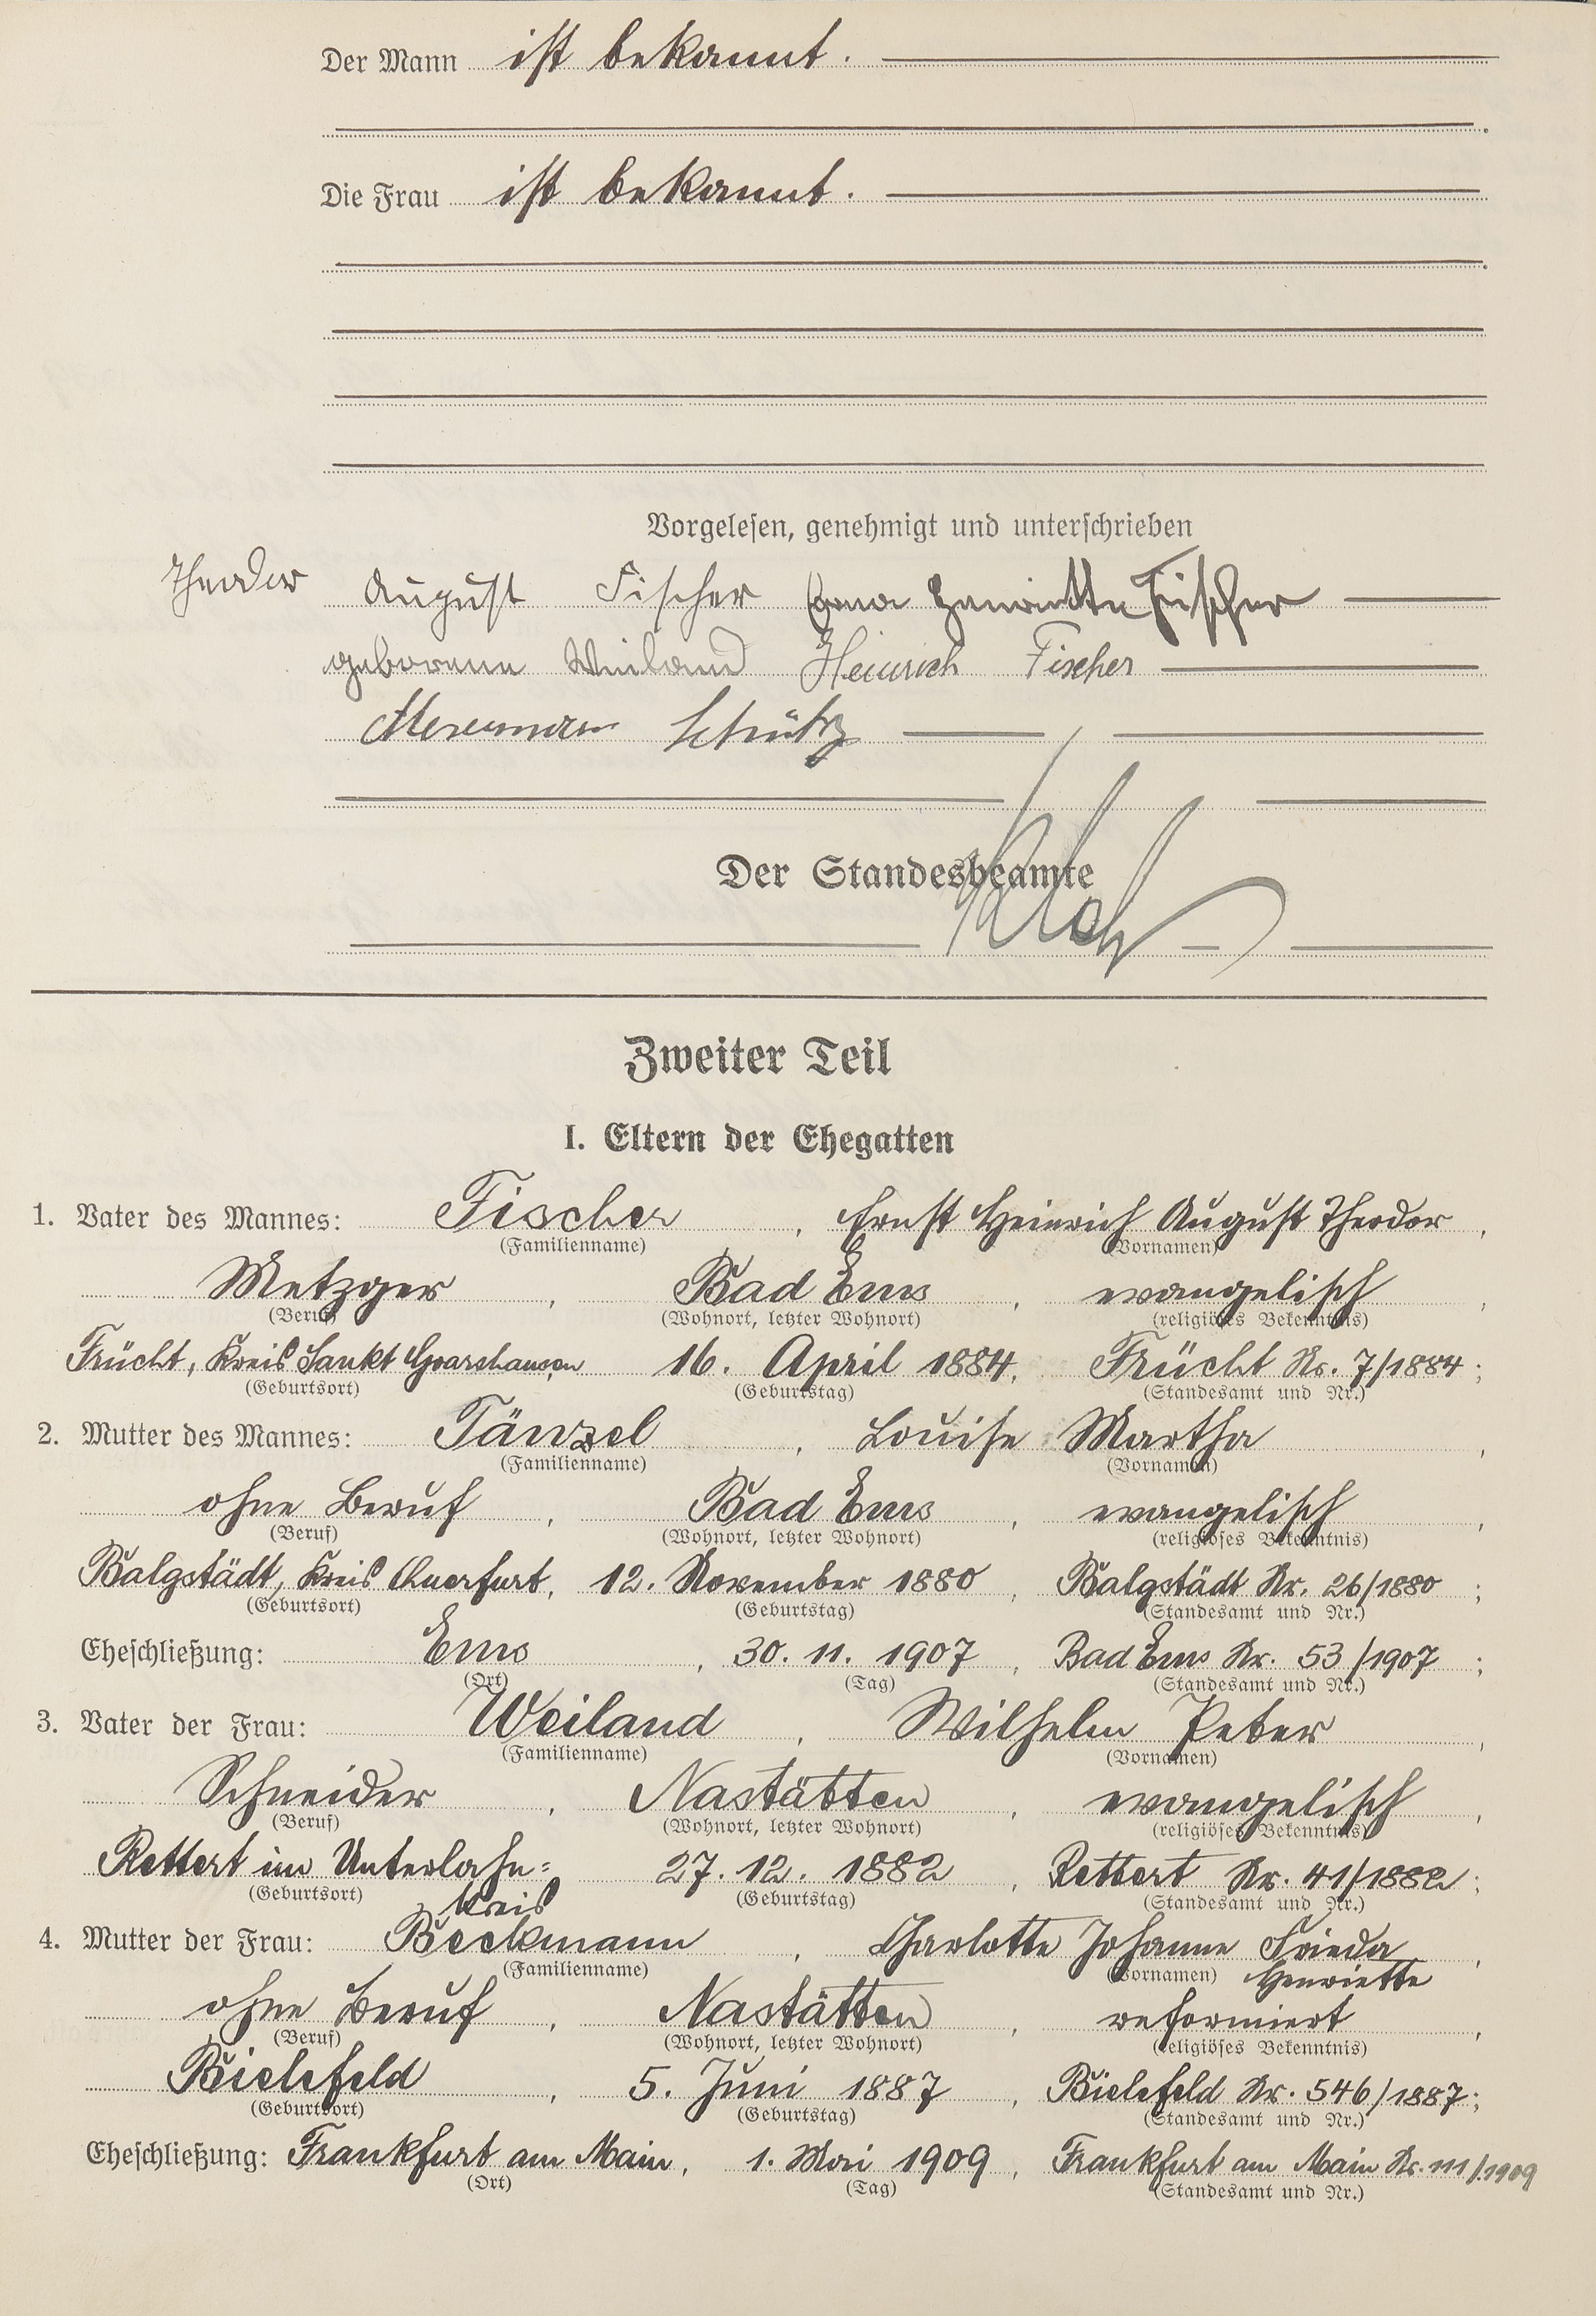 Der Mann ist bekannt.
Die Frau ist bekannt.
Vorgelesen, genehmigt und unterschrieben
Theodor August Fischer Erna Henriette Fischer
geborene Weiland Heinrich Fischer
Schütz
Der Standesbeamte
Zweiter Teil
I. Eltern der Ehegatten
1. Vater des Mannes: Fischer, Ernst Heinrich August Theodor,
(Familienname) (Vornamen)
Metzger, Bad Ems, evangelisch,
(Beruf) (Wohnort, letzter Wohnort) (religiöses Bekenntnis)
Frücht, Kreis Sankt Goarshausen, 16. April 1884, Frücht Nr. 7/1884;
(Geburtsort) (Geburtstag) (Standesamt und Nr.)
2. Mutter des Mannes: Tänzel, Louise Martha,
(Familienname) (Vornamen)
ohne Beruf, Bad Ems, evangelisch,
(Beruf) (Wohnort, letzter Wohnort) (religiöses Bekenntnis)
Balgstädt, Kreis Querfurt, 12. November 1880, Balgstädt Nr. 26/1880;
(Geburtsort) (Geburtstag) (Standesamt und Nr.)
Eheschließung: Ems, 30. 11. 1907, Bad Ems Nr. 53/1907;
(Ort) (Tag) (Standesamt und Nr.)
3. Vater der Frau: Weiland, Wilhelm Peter,
(Familienname) (Vornamen)
Schneider, Nastätten, evangelisch,
(Beruf) (Wohnort, letzter Wohnort) (religiöses Bekenntnis)
Rettert im Unterlahn= 27. 12. 1882, Rettert Nr. 41/1882;
(Geburtsort) (Geburtstag) (Standesamt und Nr.)
kreis
4. Mutter der Frau: Beckmann, Charlotte Johanne Frieda,
(Familienname) (Vornamen) Henriette
ohne Beruf, Nastätten, reformiert,
(Beruf) (Wohnort, letzter Wohnort) (religiöses Bekenntnis)
Bielefeld, 5. Juni 1887, Bielefeld Nr. 546/1887;
(Geburtsort) (Geburtstag) (Standesamt und Nr.)
Eheschließung: Frankfurt am Main, 1. Mai 1909, Frankfurt am Main Nr. 1111/1909
(Ort) (Tag) (Standesamt und Nr.)